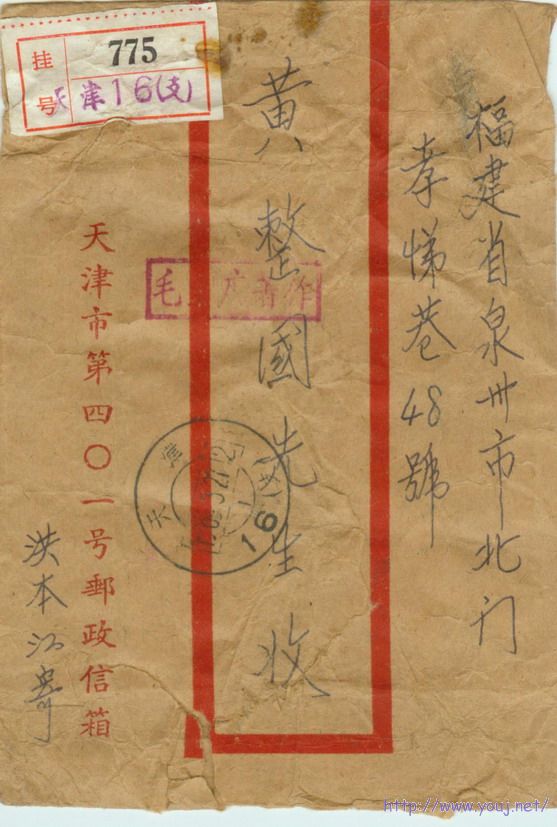 挂号
775
天津16(支)
福建省泉州市北门
孝悌巷48號
黄整國先生收
天津市第四〇一号郵政信箱
洪本江寄
天津
16(支)
http://www.youj.net/